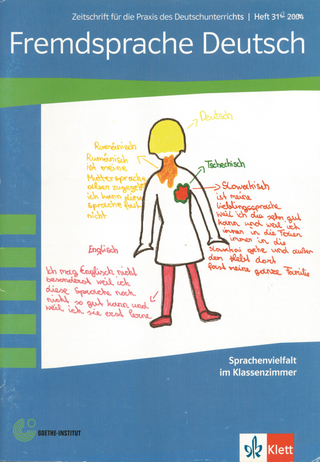 Zeitschrift für die Praxis des Deutschunterrichts | Heft 31 2004
Fremdsprache Deutsch
Deutsch
Rumänisch
Rumänisch
ist meine
Muttersprache
aber zugegeben
ich kann diese
sprache fast
nicht
Tschechisch
Slowakisch
ist meine
Lieblingssprache
weil ich die sehr gut
kann und weil ich
immer in die Ferien
immer in die
slowakei gehe und außer
dem lebt dort
fast meine ganze Familie
Englisch
Ich mag Englisch nicht
besonderst weil ich
diese Sprache noch
nicht so gut kann und
weil ich sie erst lerne
Sprachenvielfalt
im Klassenzimmer
GOETHE-INSTITUT
Klett